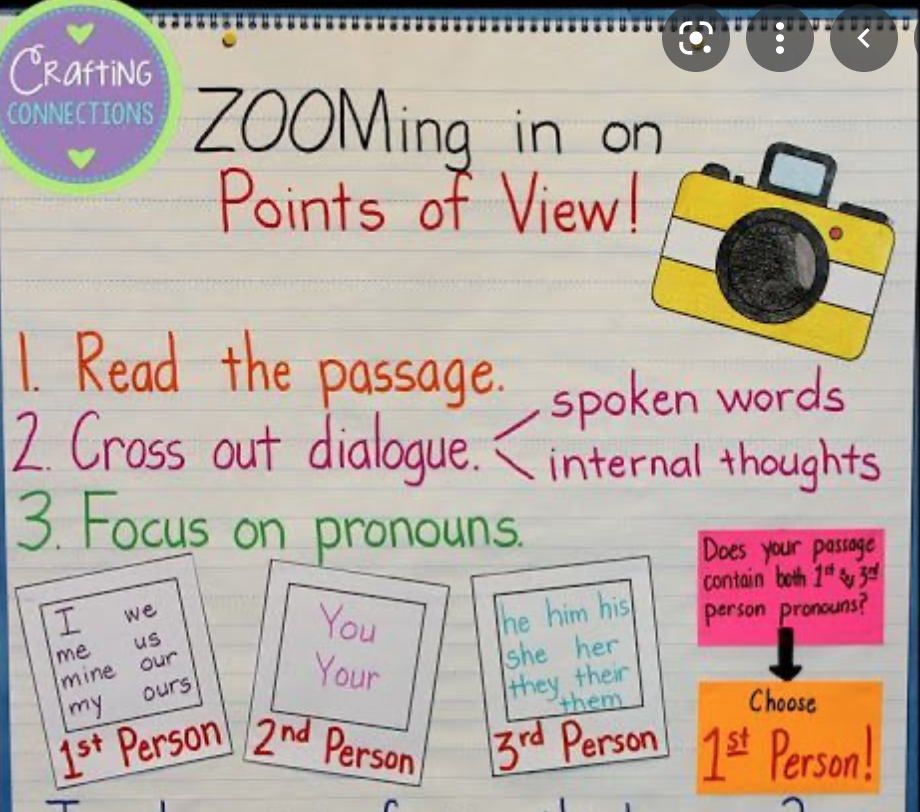 CRAFTING
CONNECTIONS
ZOOMing in on
Points of View!
1. Read the passage.
2. Cross out dialogue.
spoken words
internal thoughts
3. Focus on pronouns.
I we
me us
mine our
my ours
1st Person
You
Your
2nd Person
he him his
she her
they their
them
3rd Person
Does your passage
contain both 1st & 3rd
person pronouns?
Choose
1st Person!